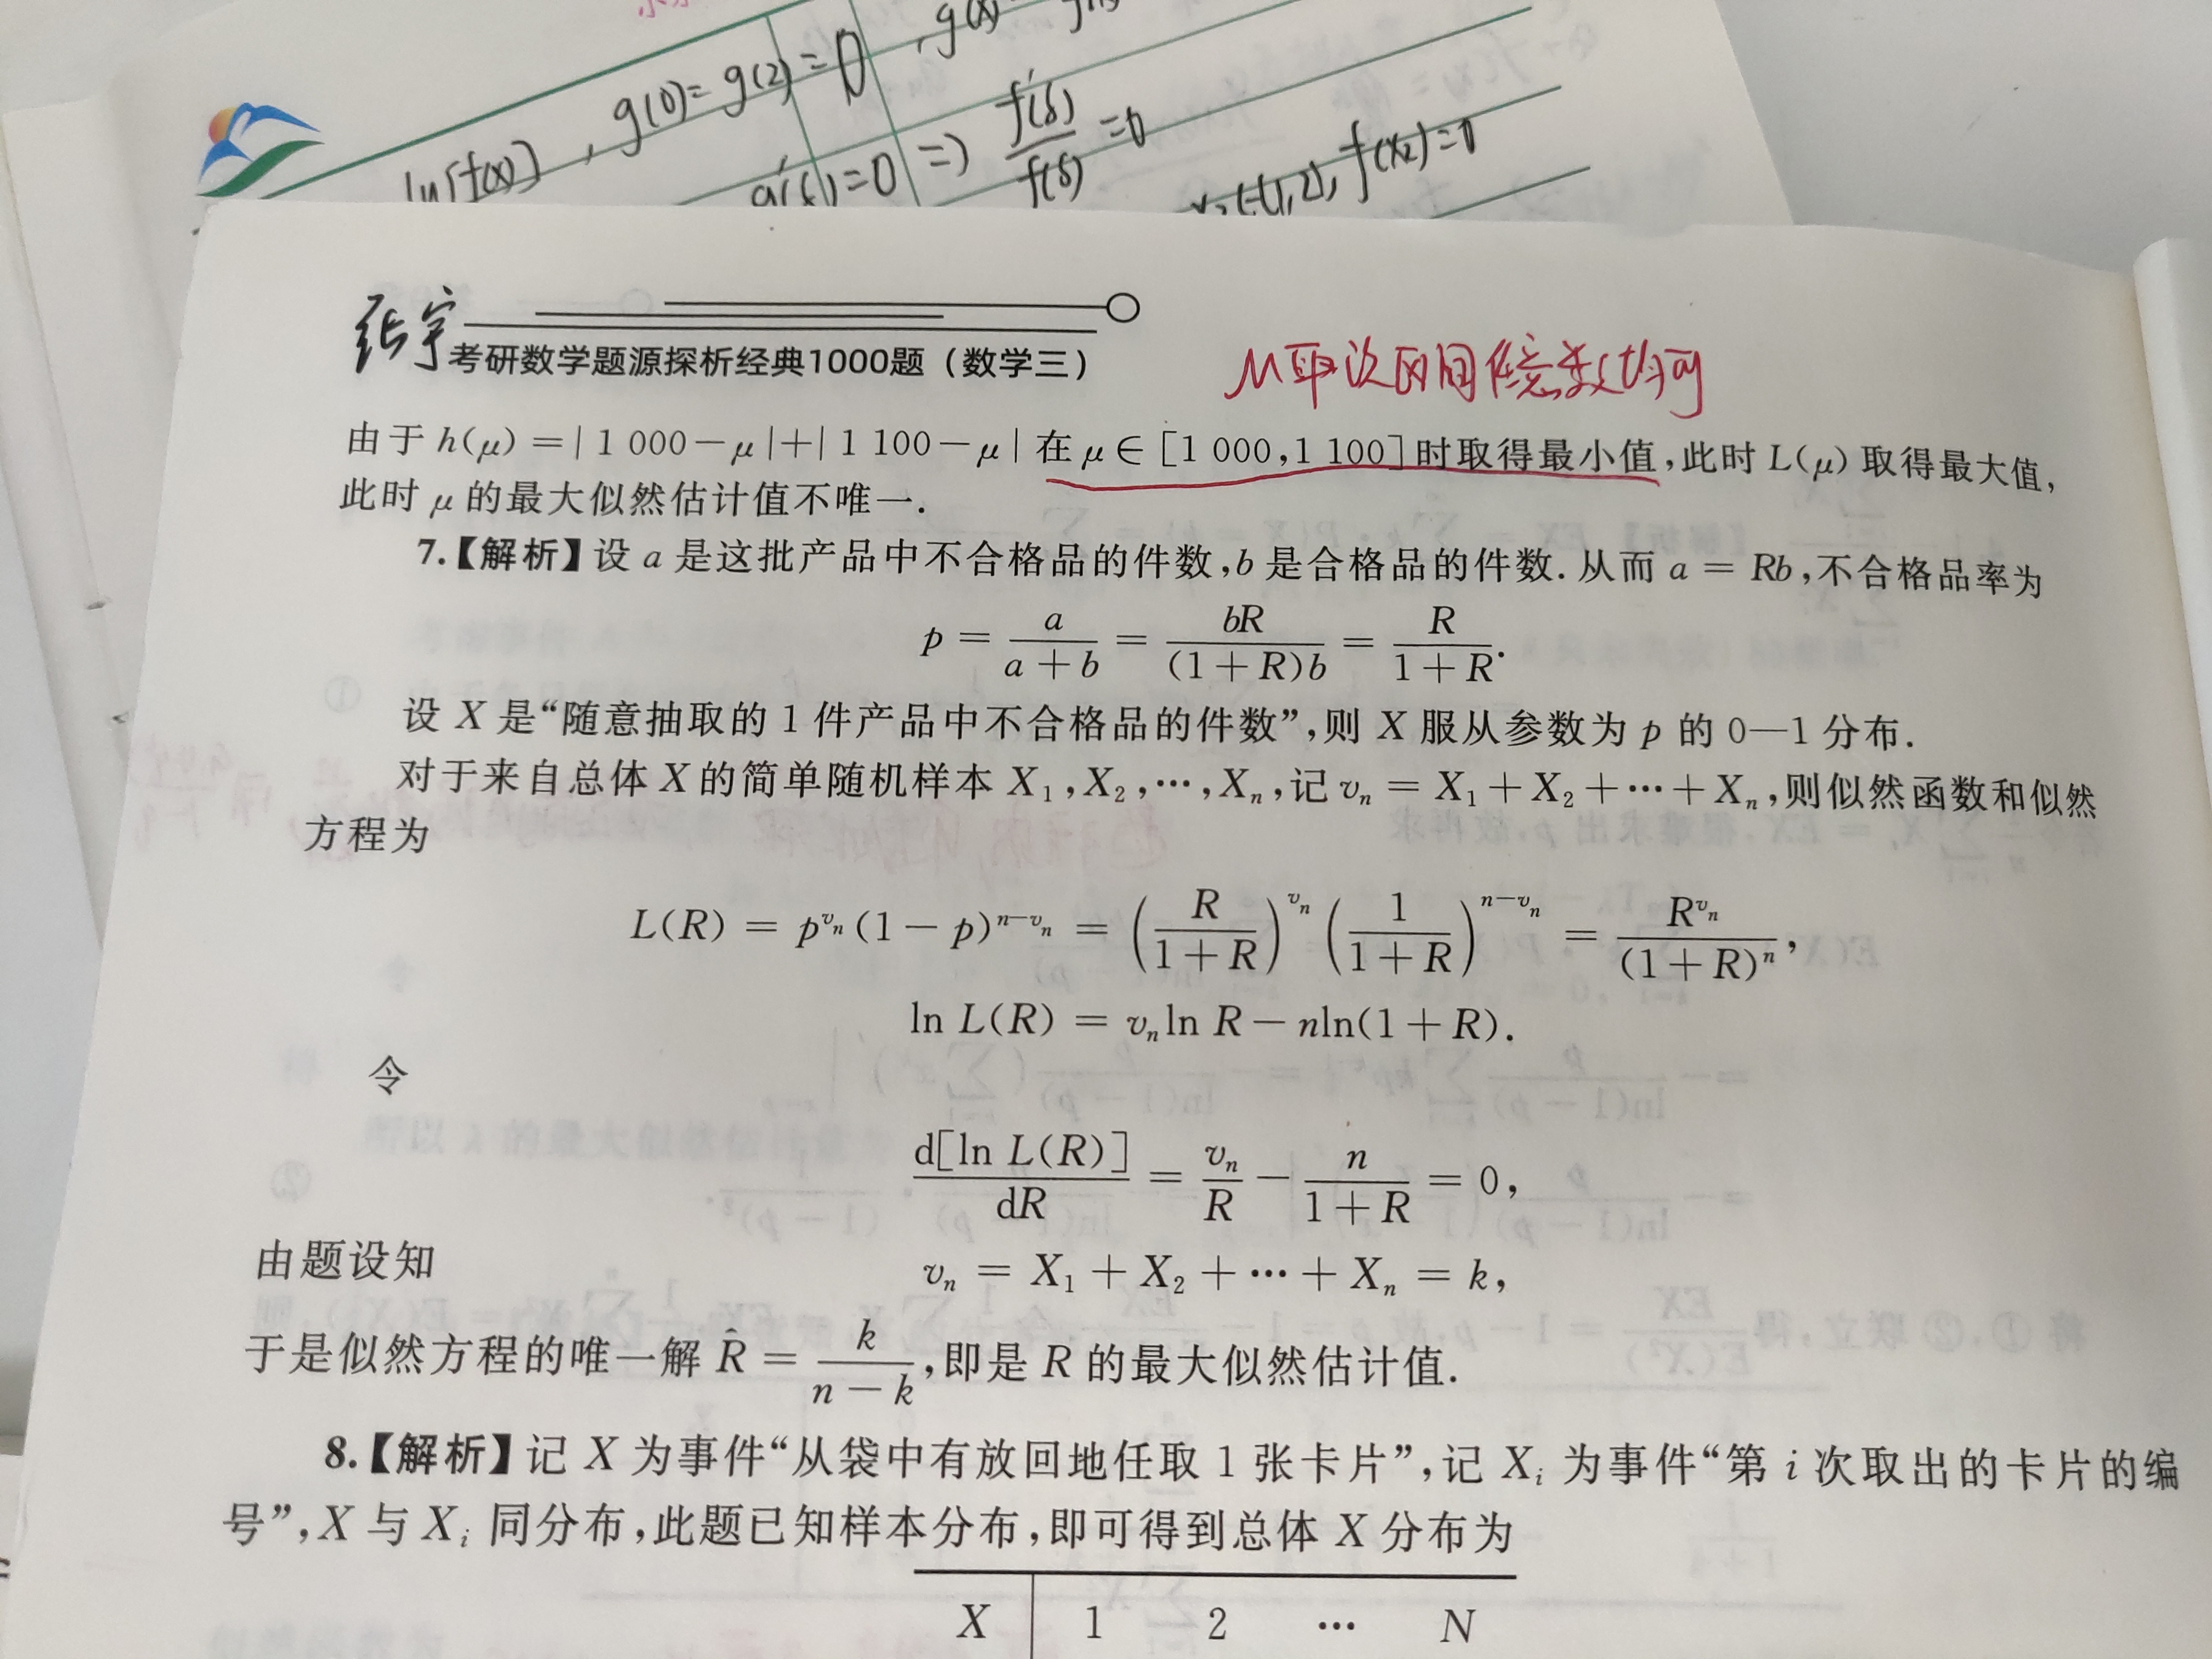 ln[f(x)] , g(0)=g(2)=0 , g(x)
g'(δ)=0 => f'(δ)/f(δ) =0
f(x₂)=0
张宇
考研数学题源探析经典1000题（数学三）
M取次区间任意数均可
由于 h(μ) =| 1 000-μ|+| 1 100-μ| 在 μ∈[1 000,1 100]时取得最小值,此时 L(μ) 取得最大值,
此时 μ 的最大似然估计值不唯一.
7.【解析】设 a 是这批产品中不合格品的件数,b 是合格品的件数. 从而 a = Rb,不合格品率为
p = a/(a+b) = bR/((1+R)b) = R/(1+R).
设 X 是“随意抽取的 1 件产品中不合格品的件数”,则 X 服从参数为 p 的 0—1 分布.
对于来自总体 X 的简单随机样本 X₁,X₂,…,Xₙ,记 vₙ = X₁+X₂+…+Xₙ,则似然函数和似然
方程为
L(R) = p^{vₙ}(1-p)^{n-vₙ} = (R/(1+R))^{vₙ} (1/(1+R))^{n-vₙ} = R^{vₙ}/(1+R)^n,
ln L(R) = vₙln R-nln(1+R).
令
d[ln L(R)]/dR = vₙ/R - n/(1+R) = 0,
由题设知
vₙ = X₁+X₂+…+Xₙ = k,
于是似然方程的唯一解 R̂ = k/(n-k),即是 R 的最大似然估计值.
8.【解析】记 X 为事件“从袋中有放回地任取 1 张卡片”,记 Xᵢ 为事件“第 i 次取出的卡片的编
号”,X 与 Xᵢ 同分布,此题已知样本分布,即可得到总体 X 分布为
X 1 2 … N